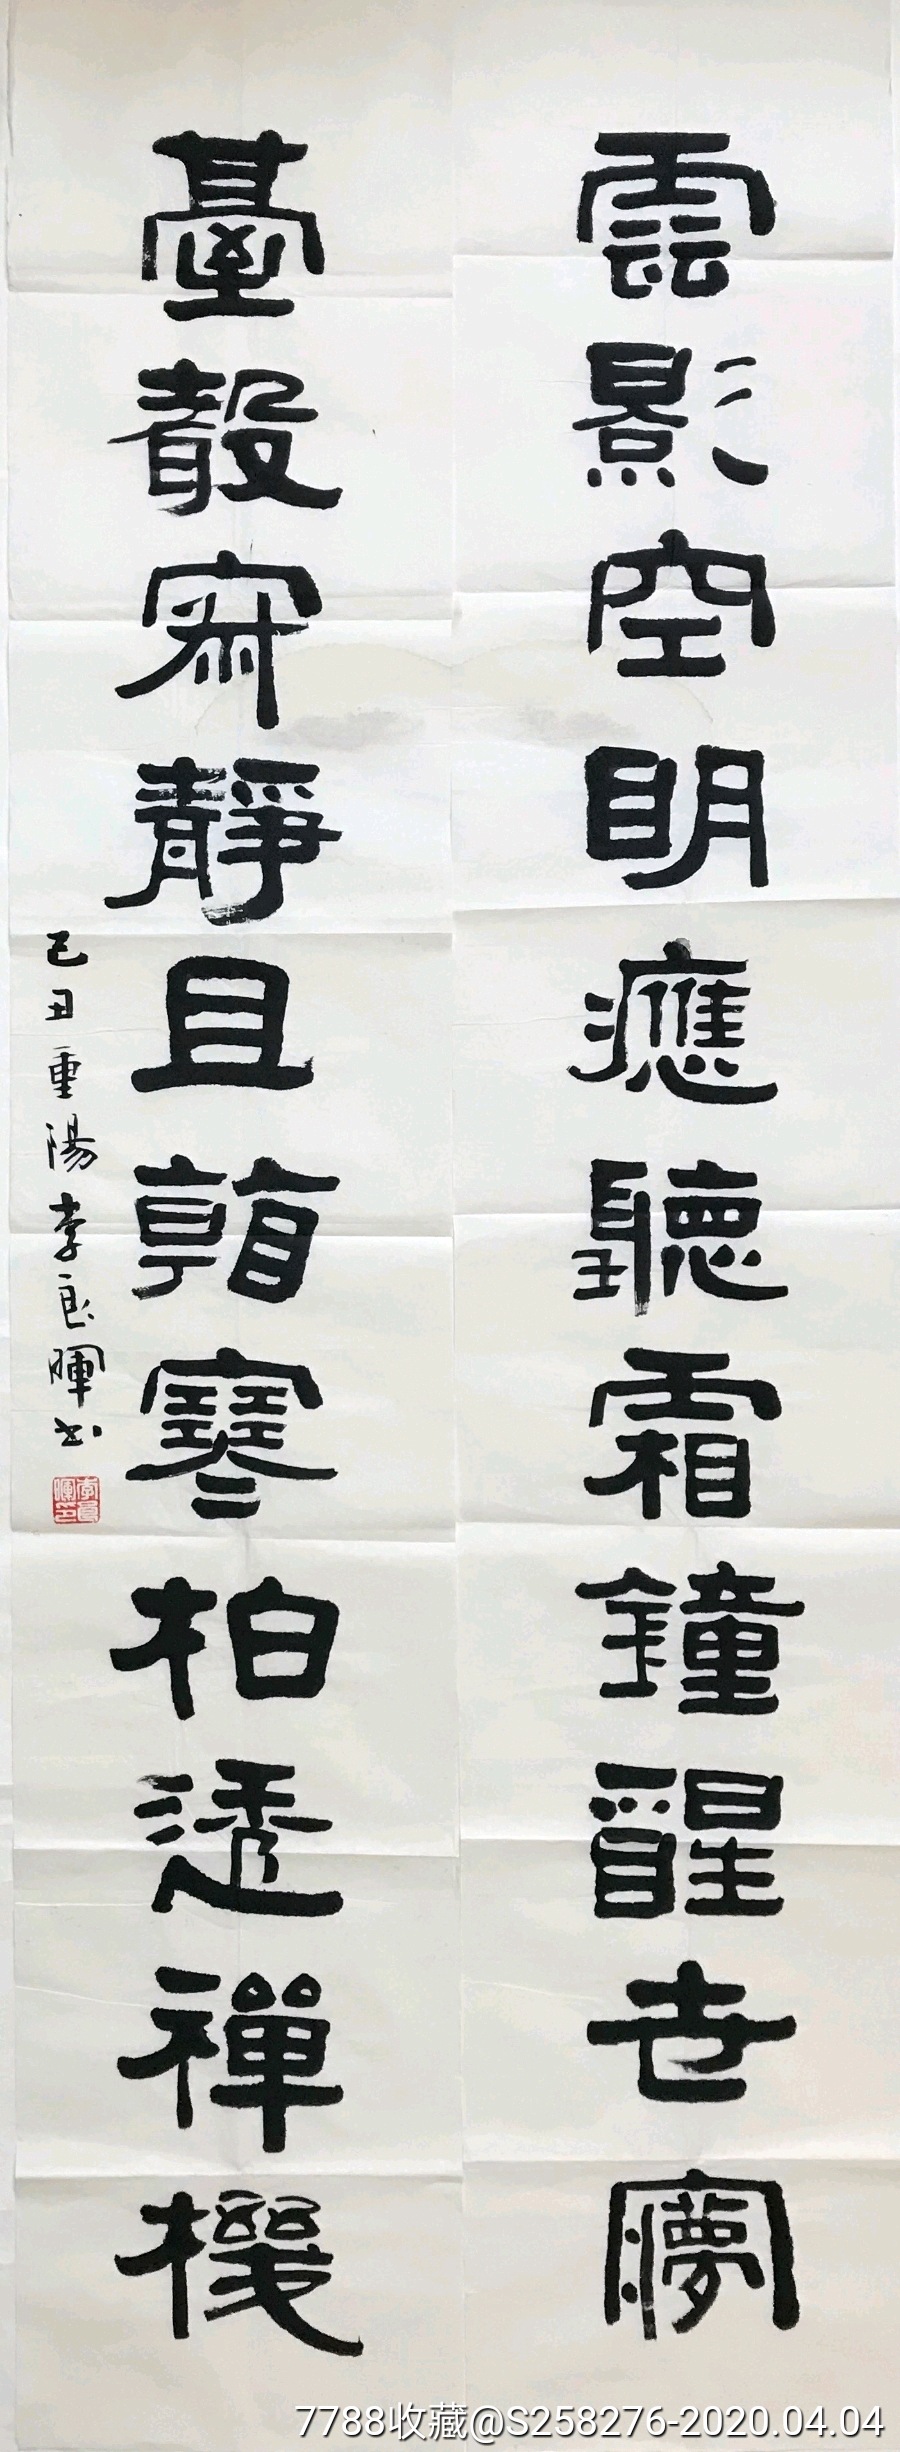 雲影空明應聽霜鐘醒世夢
臺寂靜且寒柏透禪機
己丑重陽李良暉書
李良暉印
7788收藏@S258276-2020.04.04